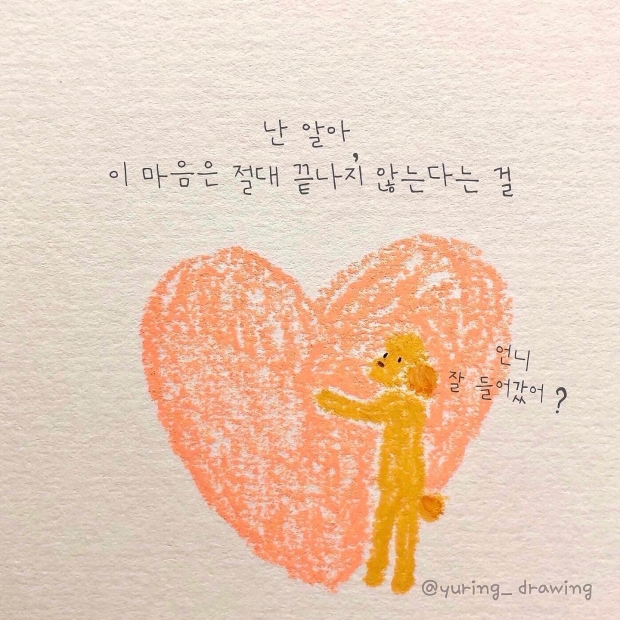 난 알아,
이 마음은 절대 끝나지 않는다는 걸
언니
잘 들어갔어?
@yuring_drawing